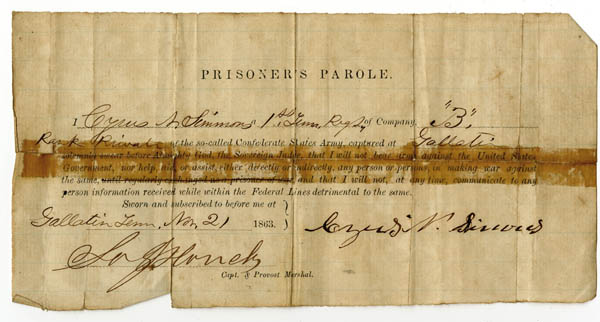 PRISONER'S PAROLE.
I Cyrus N. Simmons 1st Tenn Regt, of Company "B",
Rank Private of the so-called Confederate States Army, captured at Gallatin
solemnly swear before Almighty God, the Sovereign Judge, that I will not bear arms against the United States
Government, nor help, aid, or assist, either directly or indirectly, any person or persons, in making war against
the same, until regularly exchanged as a prisoner of war, and that I will not, at any time, communicate to any
person information received while within the Federal Lines detrimental to the same.
Sworn and subscribed to before me at
Gallatin Tenn, Nov 21 1863.
Cyrus N. Simons
Capt. & Provost Marshal.